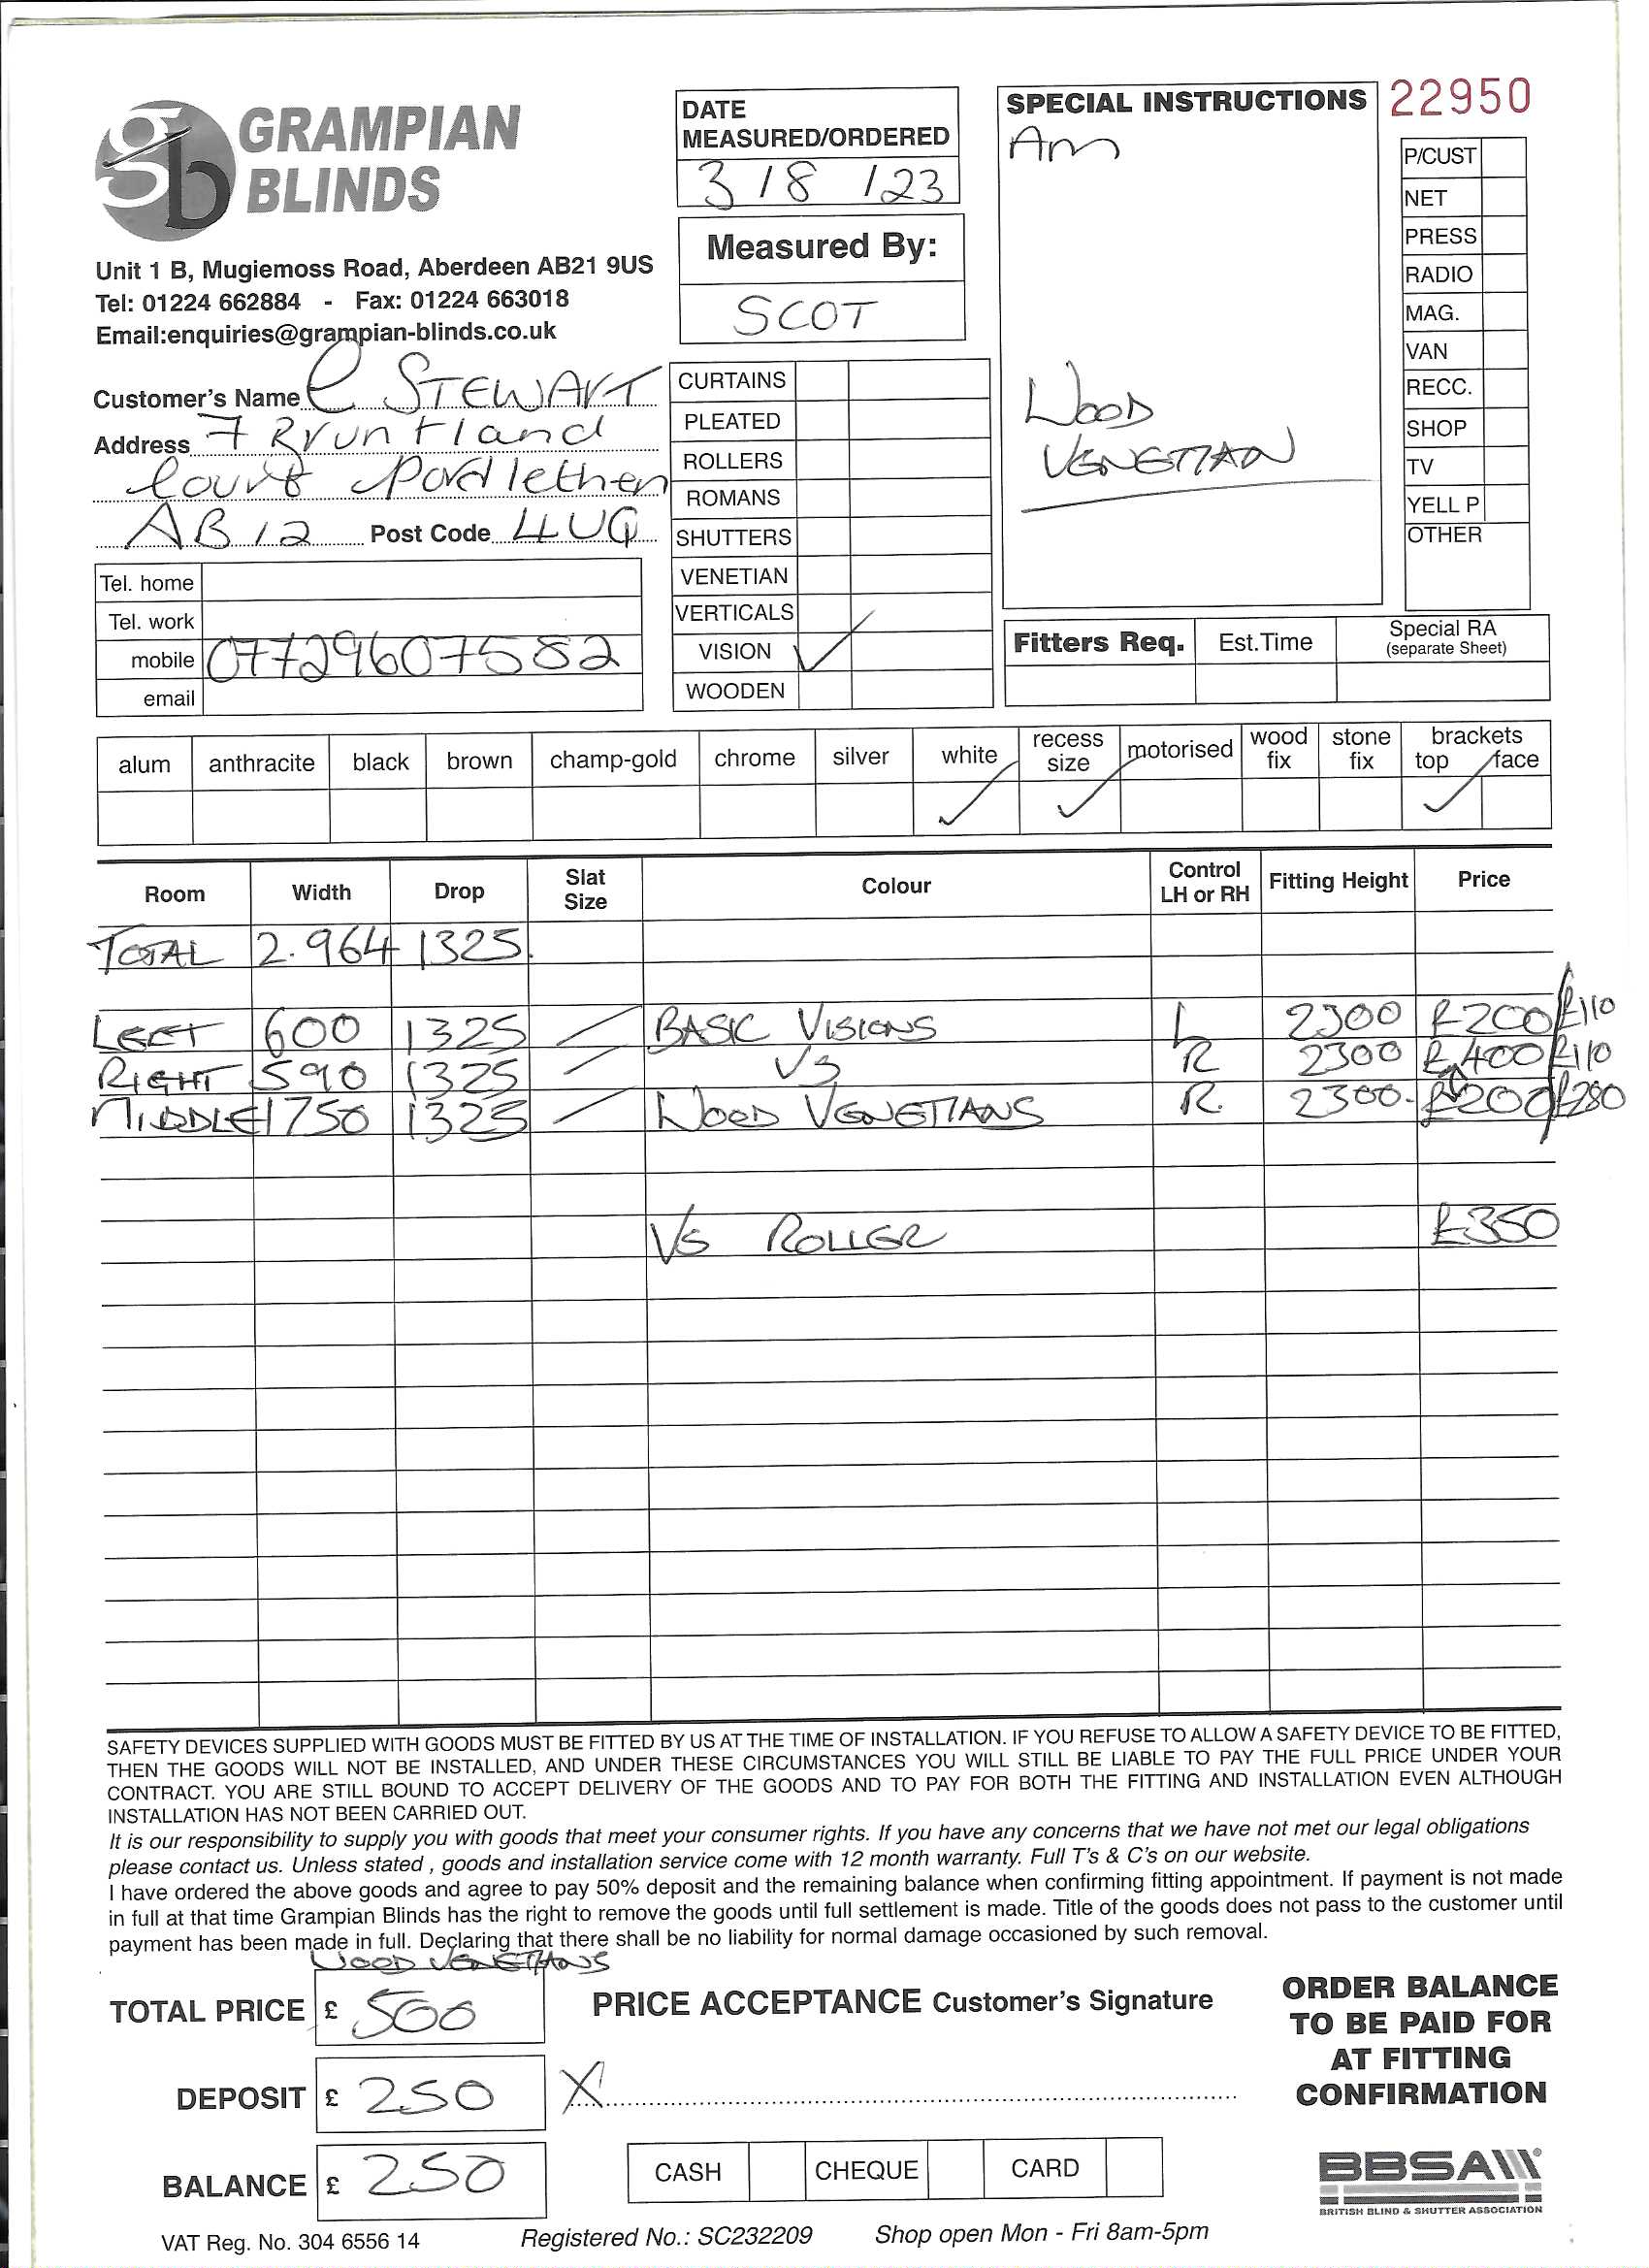 GRAMPIAN
BLINDS
Unit 1 B, Mugiemoss Road, Aberdeen AB21 9US
Tel: 01224 662884 - Fax: 01224 663018
Email:enquiries@grampian-blinds.co.uk
Customer's Name C STEWART
Address 7 Bruntland
Court Portlethen
AB12 Post Code 4UQ
Tel. home
Tel. work
mobile 07729607582
email
DATE
MEASURED/ORDERED
3/8/23
Measured By:
SCOT
CURTAINS
PLEATED
ROLLERS
ROMANS
SHUTTERS
VENETIAN
VERTICALS
VISION ✓
WOODEN
SPECIAL INSTRUCTIONS
Am
WOOD
VENETIAN
22950
P/CUST
NET
PRESS
RADIO
MAG.
VAN
RECC.
SHOP
TV
YELL P
OTHER
Fitters Req. Est.Time Special RA
(separate Sheet)
alum anthracite black brown champ-gold chrome silver white recess size motorised wood fix stone fix brackets top face
✓ ✓ ✓
Room Width Drop Slat Size Colour Control LH or RH Fitting Height Price
TOTAL 2.964 1325
LEFT 600 1325 BASIC VISIONS L 2300 £200 £110
RIGHT 590 1325 VS R 2300 £400 £110
MIDDLE 1750 1325 WOOD VENETIANS R 2300 £200 £280
VS ROLLER £350
SAFETY DEVICES SUPPLIED WITH GOODS MUST BE FITTED BY US AT THE TIME OF INSTALLATION. IF YOU REFUSE TO ALLOW A SAFETY DEVICE TO BE FITTED,
THEN THE GOODS WILL NOT BE INSTALLED, AND UNDER THESE CIRCUMSTANCES YOU WILL STILL BE LIABLE TO PAY THE FULL PRICE UNDER YOUR
CONTRACT. YOU ARE STILL BOUND TO ACCEPT DELIVERY OF THE GOODS AND TO PAY FOR BOTH THE FITTING AND INSTALLATION EVEN ALTHOUGH
INSTALLATION HAS NOT BEEN CARRIED OUT.
It is our responsibility to supply you with goods that meet your consumer rights. If you have any concerns that we have not met our legal obligations
please contact us. Unless stated , goods and installation service come with 12 month warranty. Full T's & C's on our website.
I have ordered the above goods and agree to pay 50% deposit and the remaining balance when confirming fitting appointment. If payment is not made
in full at that time Grampian Blinds has the right to remove the goods until full settlement is made. Title of the goods does not pass to the customer until
payment has been made in full. Declaring that there shall be no liability for normal damage occasioned by such removal.
WOOD VENETIANS
TOTAL PRICE £ 500
DEPOSIT £ 250
BALANCE £ 250
PRICE ACCEPTANCE Customer's Signature
X
CASH CHEQUE CARD
ORDER BALANCE
TO BE PAID FOR
AT FITTING
CONFIRMATION
BBSA
BRITISH BLIND & SHUTTER ASSOCIATION
VAT Reg. No. 304 6556 14 Registered No.: SC232209 Shop open Mon - Fri 8am-5pm